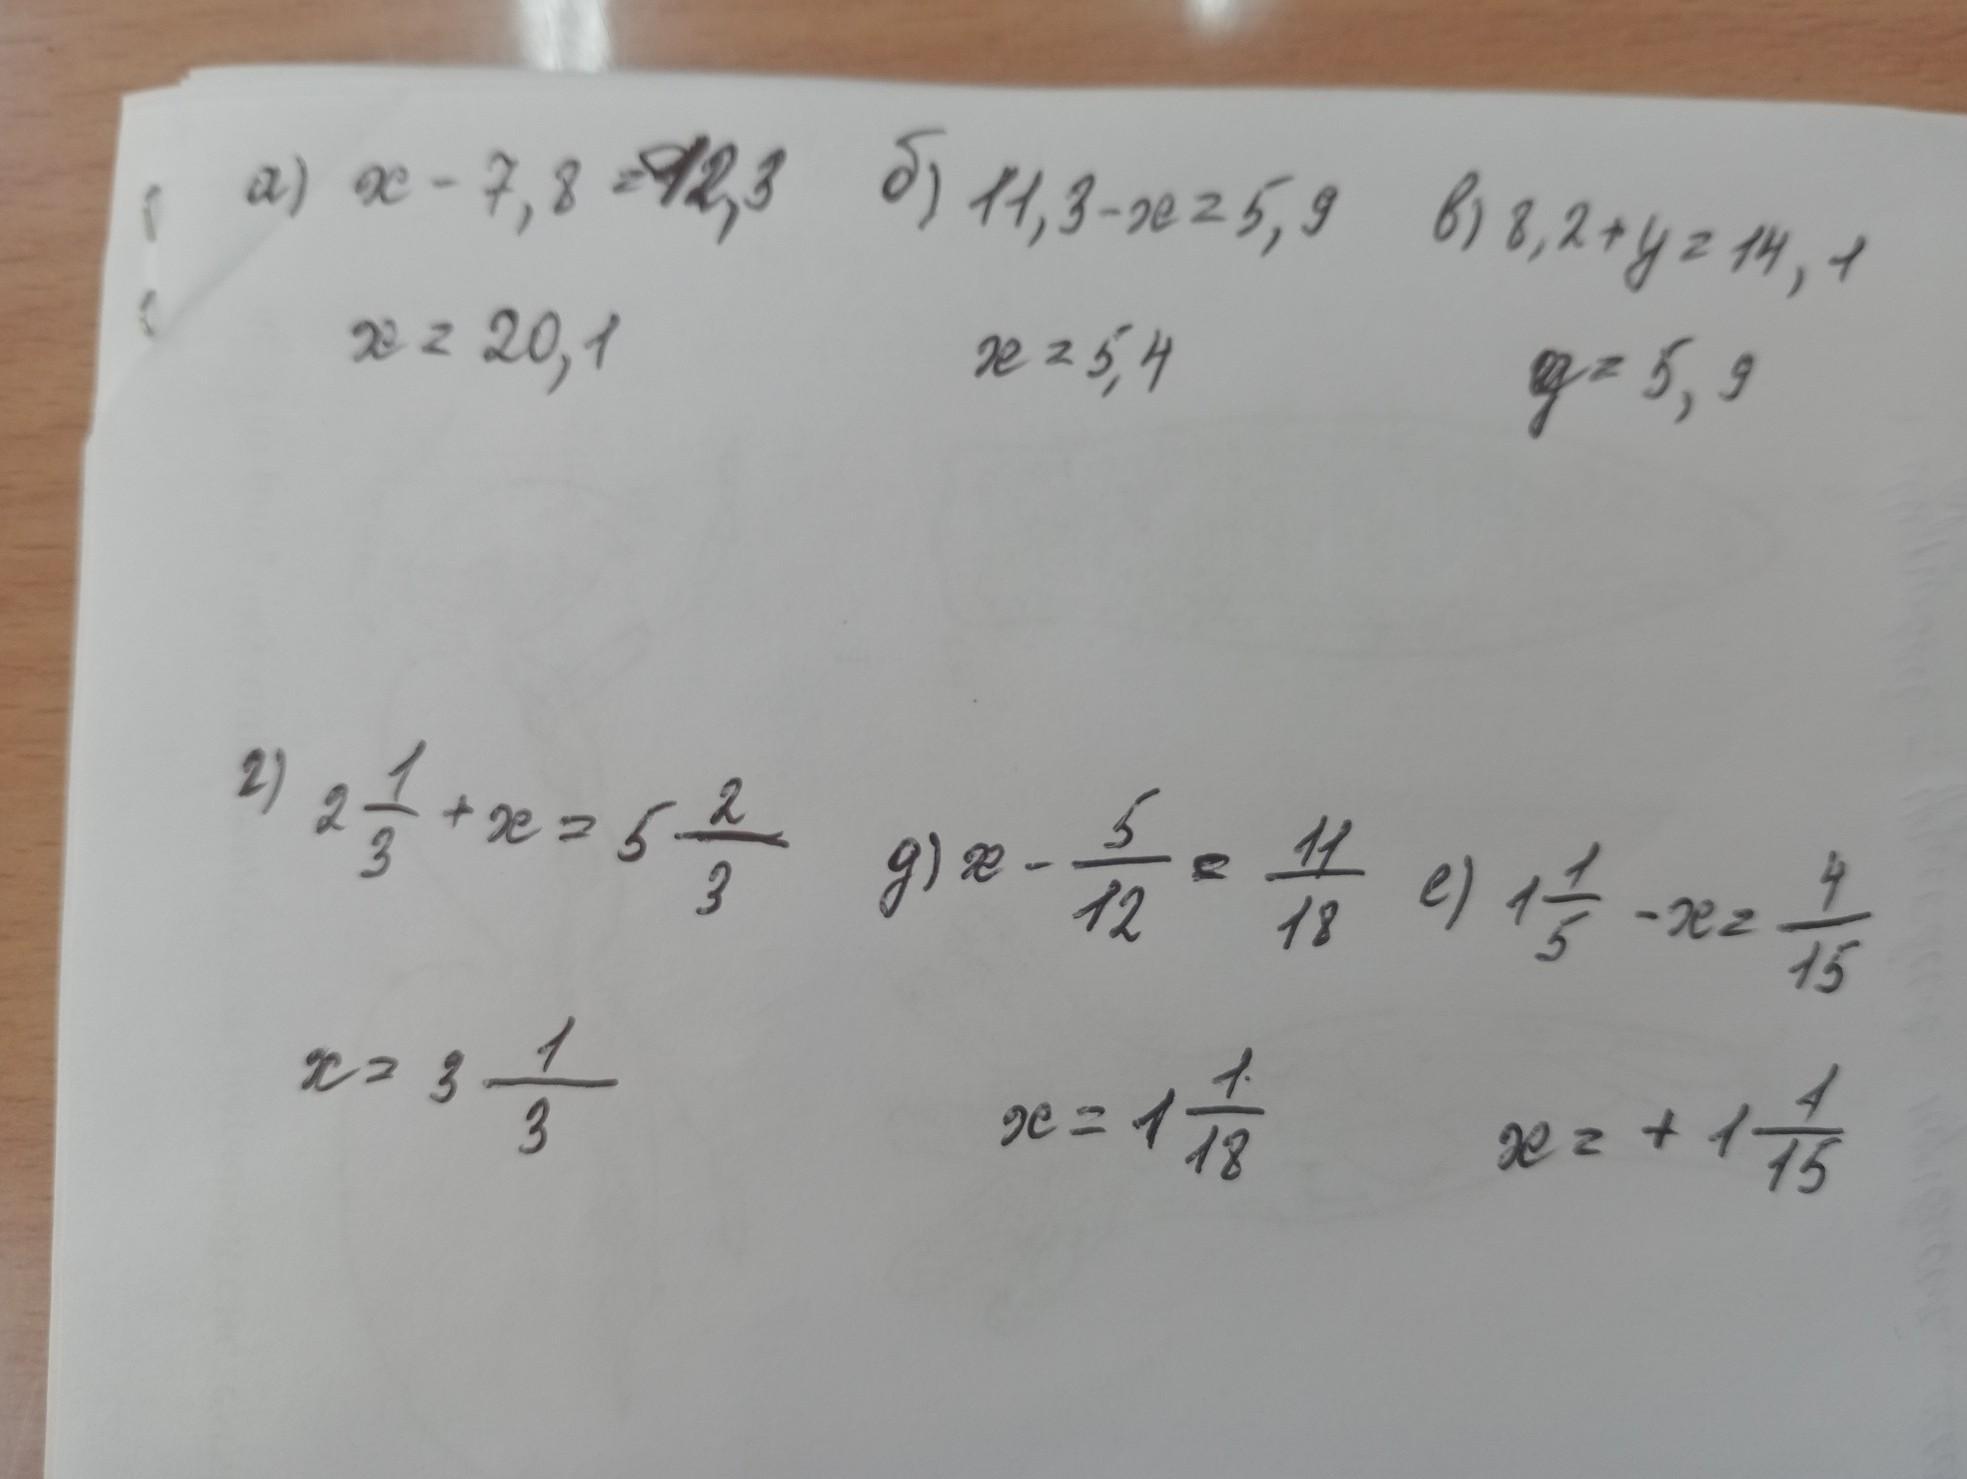 а) x - 7,8 = 12,3 б) 11,3 - x = 5,9 в) 8,2 + y = 14,1
x = 20,1 x = 5,4 y = 5,9
г) 2 1/3 + x = 5 2/3 д) x - 5/12 = 11/18 е) 1 1/5 - x = 4/15
x = 3 1/3 x = 1 1/18 x = + 1 1/15